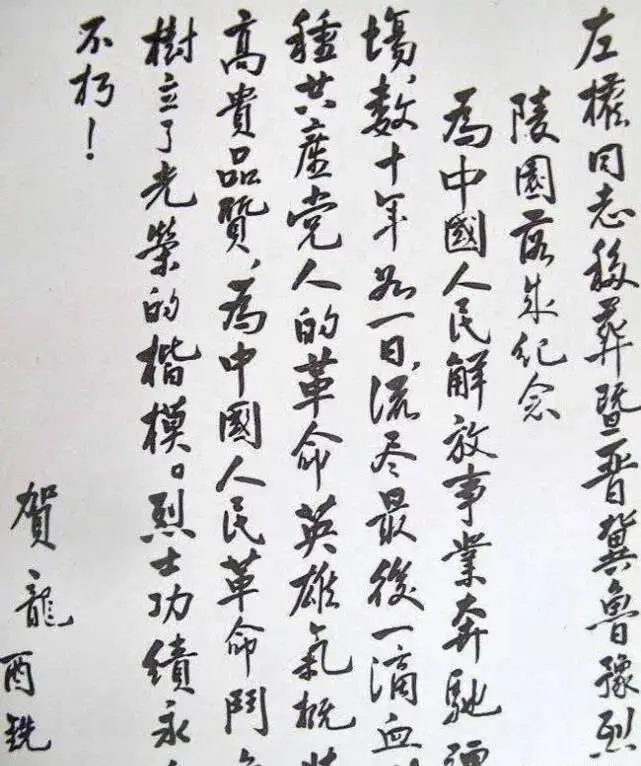 左權同志移葬暨晋冀魯豫烈
陵園落成纪念
為中國人民解放事業奔馳
塲,数十年如一日,流尽最後一滴血
種共產党人的革命英雄氣概
高貴品質,為中國人民革命鬥
樹立了光榮的楷模。烈士功績永
不朽!
賀龍